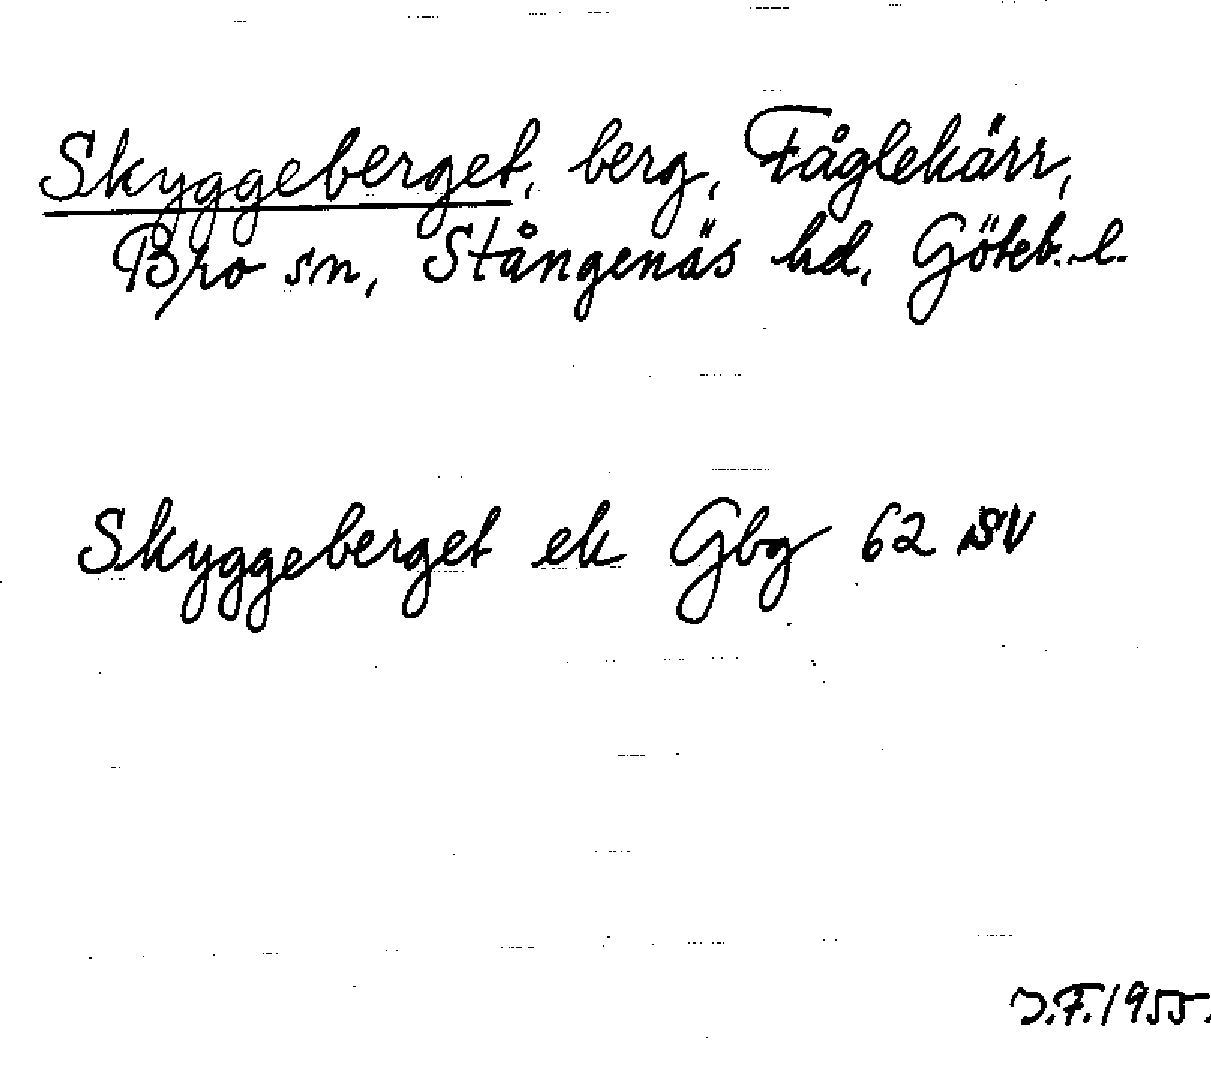 Skyggeberget, berg, Fåglekärr,
Bro sn, Stångenäs hd, Göteb. l.
Skyggeberget ek Gbg 62 SV
J.F. 1955.